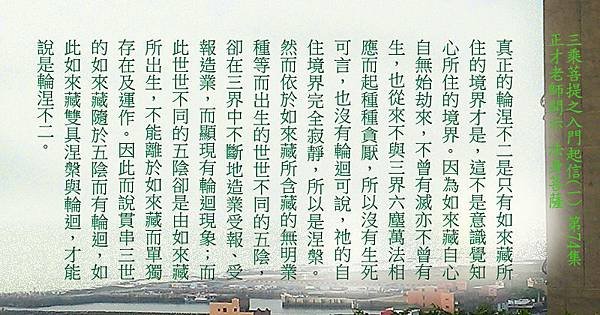 三乘菩提之入門起信(一) 第74集
正才老師開示 菩薩
真正的輪涅不二是只有如來藏所
住的境界才是，這不是意識覺知
心所住的境界。因為如來藏自心
自無始劫來，不曾有滅亦不曾有
生，也從來不與三界六塵萬法相
應而起種種貪厭，所以沒有生死
可言，也沒有輪迴可說，祂的自
住境界完全寂靜，所以是涅槃。
然而依於如來藏所含藏的無明業
種等而出生的世世不同的五陰，
卻在三界中不斷地造業受報、受
報造業，而顯現有輪迴現象；而
此世世不同的五陰卻是由如來藏
所出生，不能離於如來藏而單獨
存在及運作。因此而說貫串三世
的如來藏隨於五陰而有輪迴，如
此如來藏雙具涅槃與輪迴，才能
說是輪涅不二。